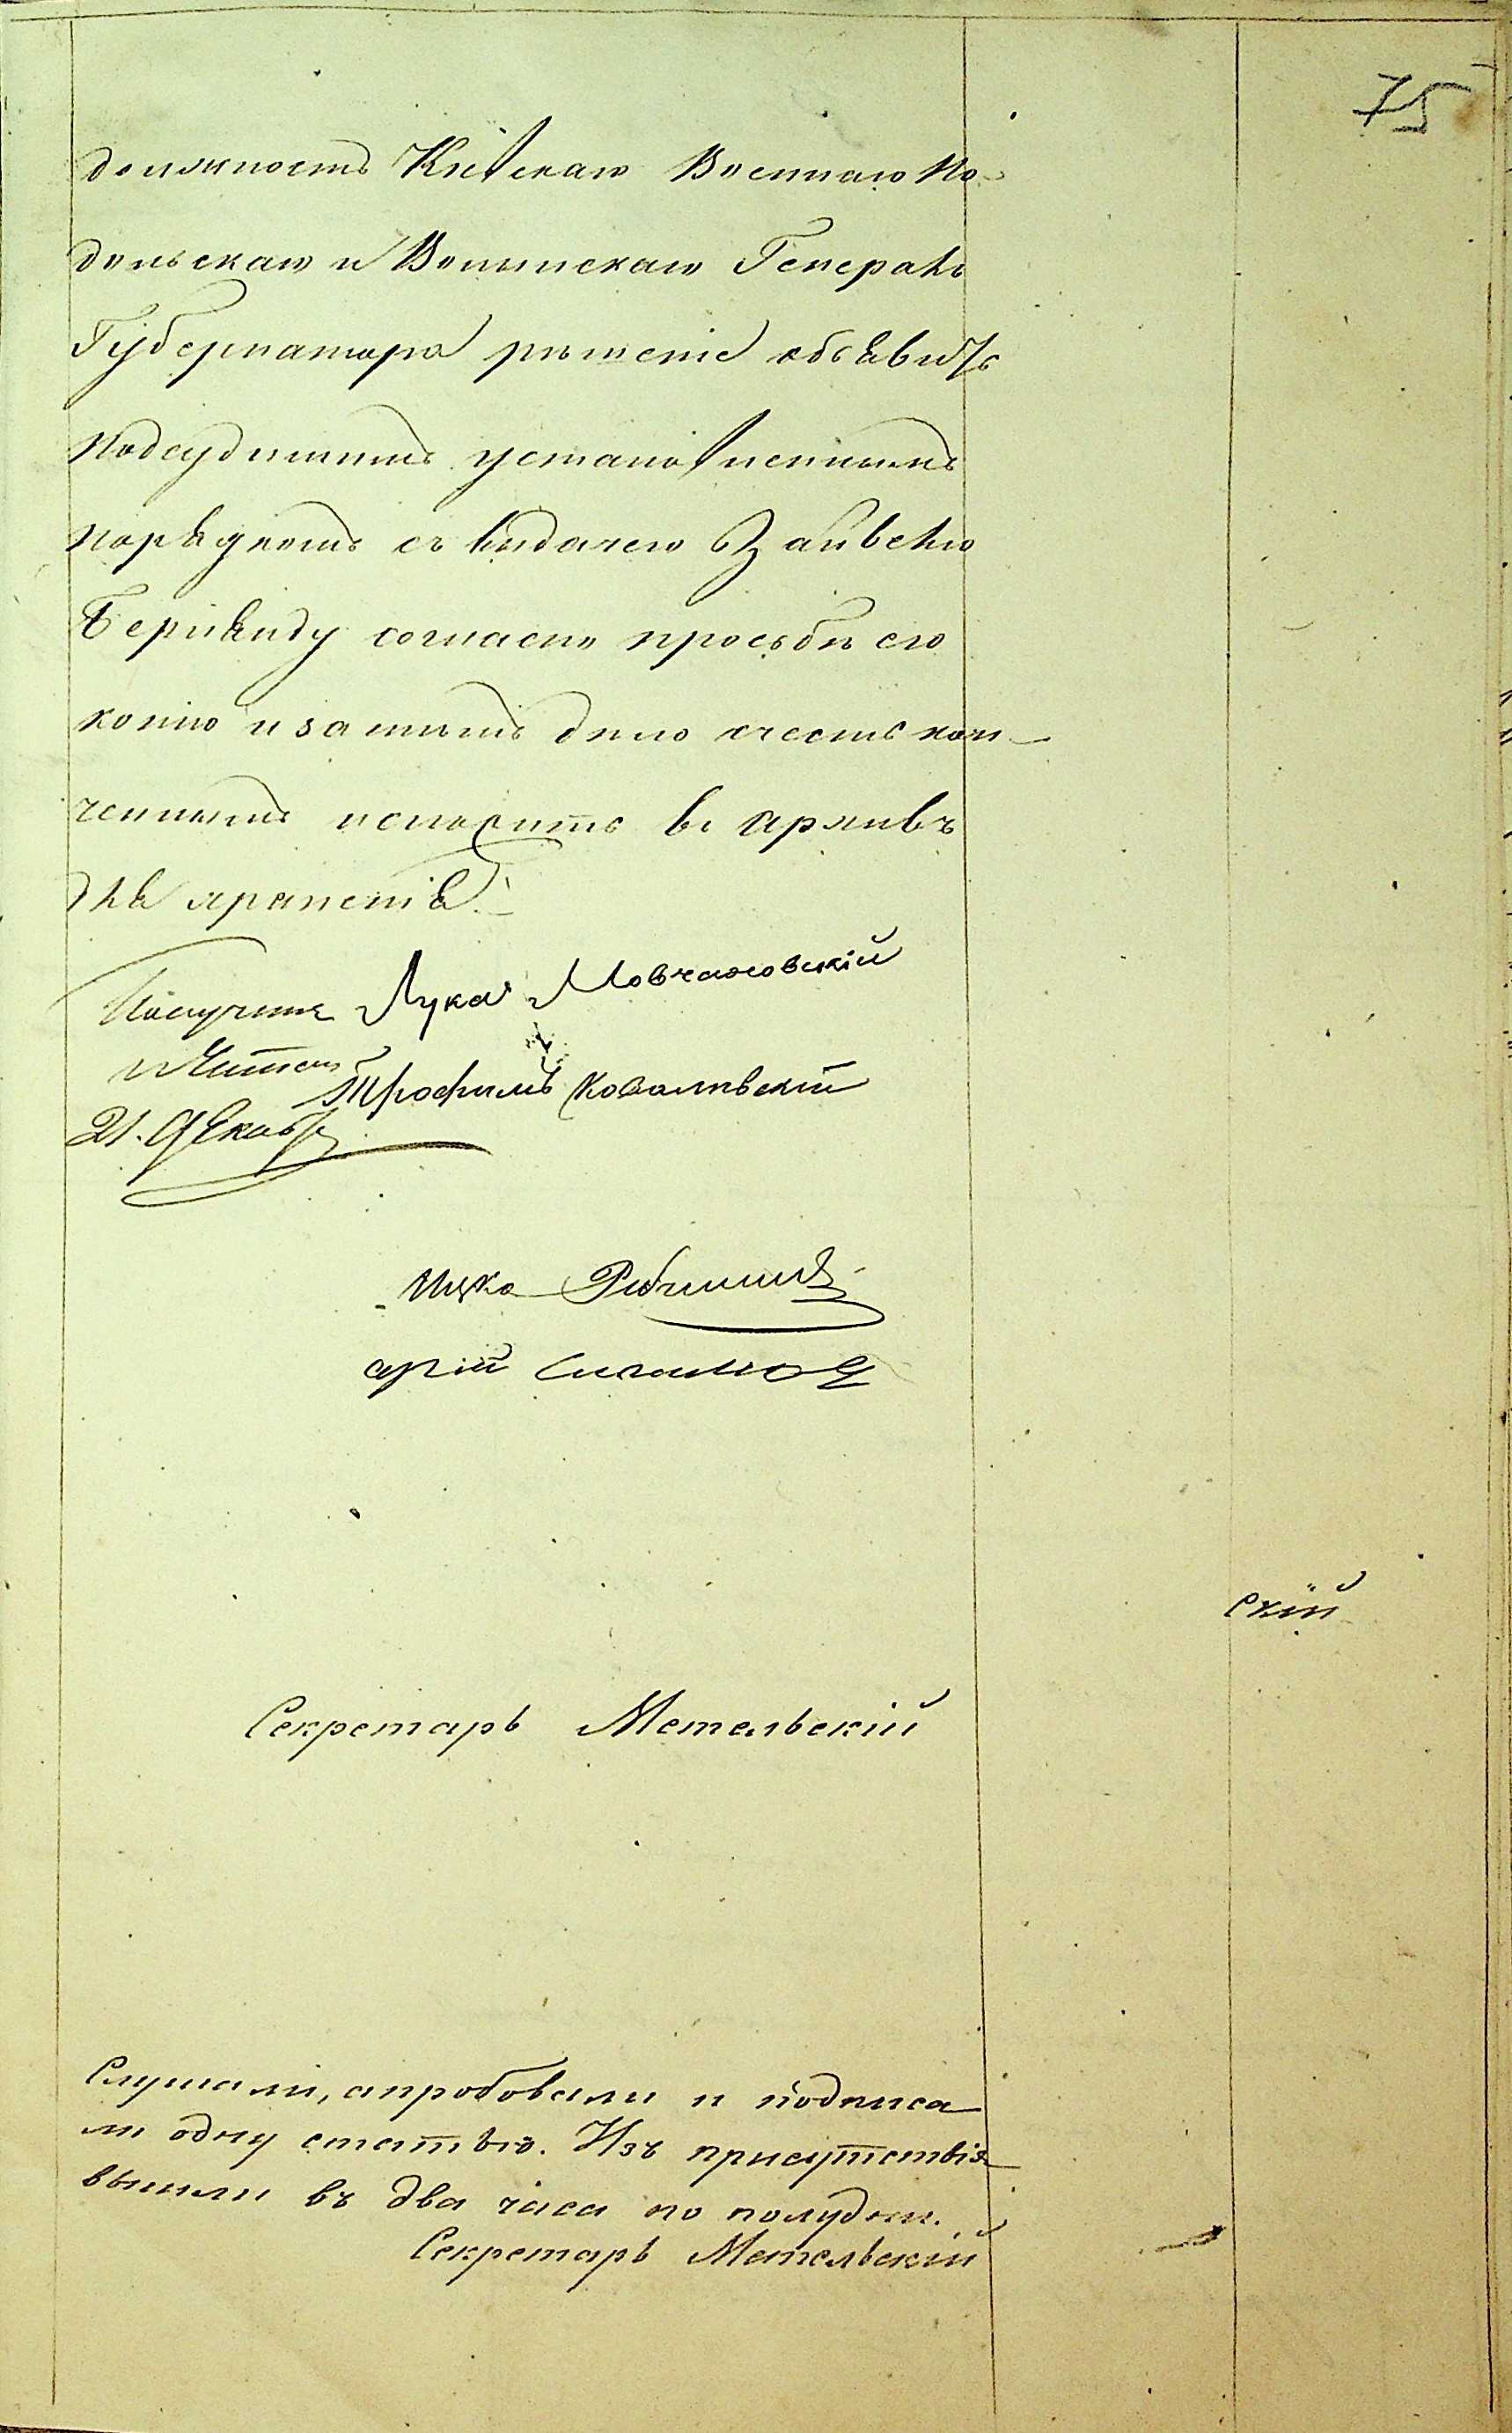 75
должность Кіевскаго Военнаго По-
дольскаго и Волынскаго Генералъ
Губернатора рѣшеніе объявить
подсудимымъ установленнымъ
порядкомъ съ выдачею
согласно просьбѣ его
копію и затѣмъ дѣло счесть кон-
ченнымъ и сложить въ архивъ
для храненія.
Лука Мовчановскій
Трофимъ Ковалѣвскій
21. Декабр
Ицко
скій
Секретарь Метельскій
Слушали, апробовали и подписа
ли одну статью. Изъ присутствія
вышли въ два часа по полудни.
Секретарь Метельскій